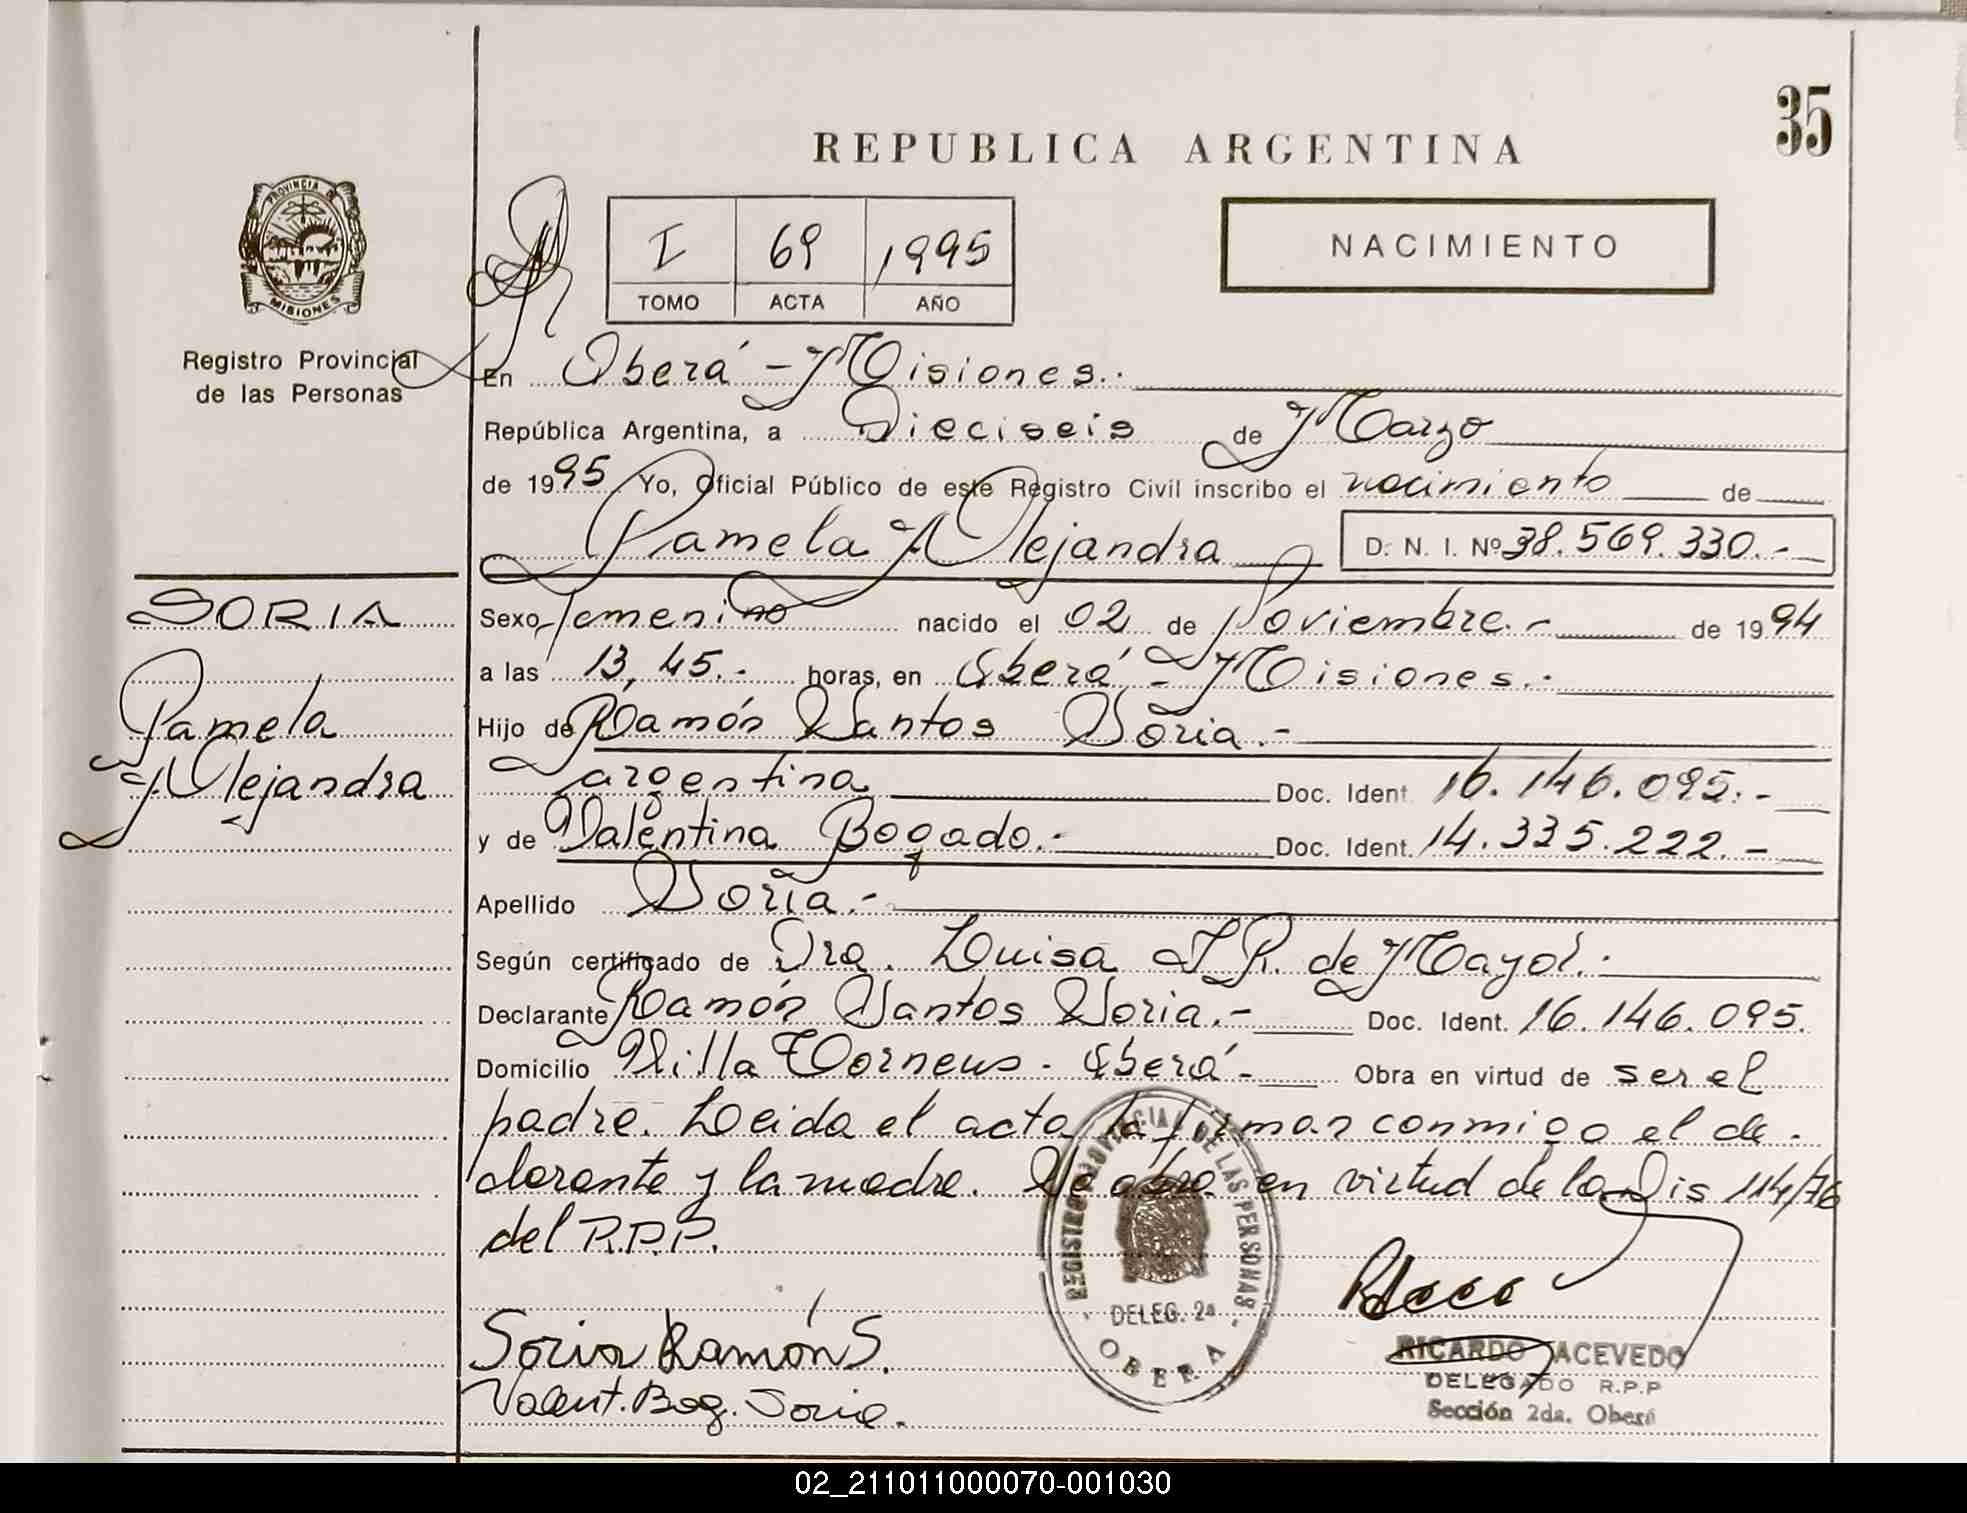 35
REPUBLICA ARGENTINA
PROVINCIA DE
MISIONES
Registro Provincial
de las Personas
I 69 1995
TOMO ACTA AÑO
NACIMIENTO
En Oberá - Misiones.-
República Argentina, a Dieciseis de Marzo
de 1995 Yo, Oficial Público de este Registro Civil inscribo el nacimiento de
Pamela Alejandra D. N. I. Nº 38.569.330.-
SORIA
Pamela
Alejandra
Sexo femenino nacido el 02 de Noviembre.- de 1994
a las 13,45.- horas, en Oberá - Misiones.-
Hijo de Ramón Santos Soria.-
argentina Doc. Ident. 16.146.095.-
y de Valentina Bogado.- Doc. Ident. 14.335.222.-
Apellido Soria.-
Según certificado de Dra. Luisa I R. de Mayol.-
Declarante Ramón Santos Soria.- Doc. Ident. 16.146.095.
Domicilio Villa Torneus - Oberá - Obra en virtud de ser el
padre. Leida el acta la firman conmigo el de-
clarante y la madre. Se obra en virtud de la Dis 114/76
del R.P.P.
REGISTRO PROVINCIAL DE LAS PERSONAS
DELEG. 2a
OBERA
Soria Ramón S.
Valent. Bog. Soria.
RICARDO ACEVEDO
DELEGADO R.P.P
Sección 2da. Oberá
02_211011000070-001030